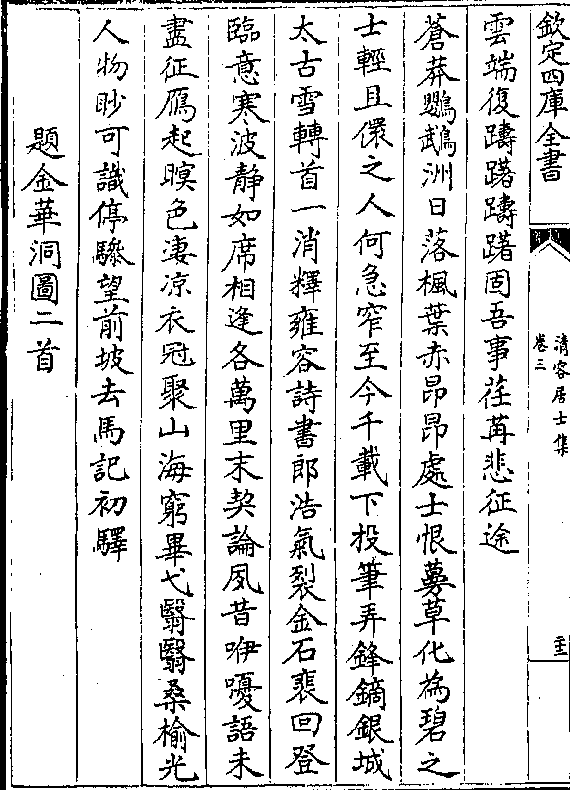 欽定四庫全書
清容居士集
卷三
二十二
雲端復躊躇躊躇固吾事荏苒悲征途
蒼莽鸚鵡洲日落楓葉赤昂昂處士恨蔓草化為碧之
士輕且儇之人何急窄至今千載下投筆弄鋒鏑銀城
太古雪轉首一消釋雍容詩書郎浩氣裂金石裴回登
臨意寒波靜如席相逢各萬里末契論夙昔咿嚘語未
盡征鴈起暝色凄凉衣冠聚山海窮畢弋翳翳桑榆光
人物眇可識停驂望前坡去馬記初驛
題金華洞圖二首